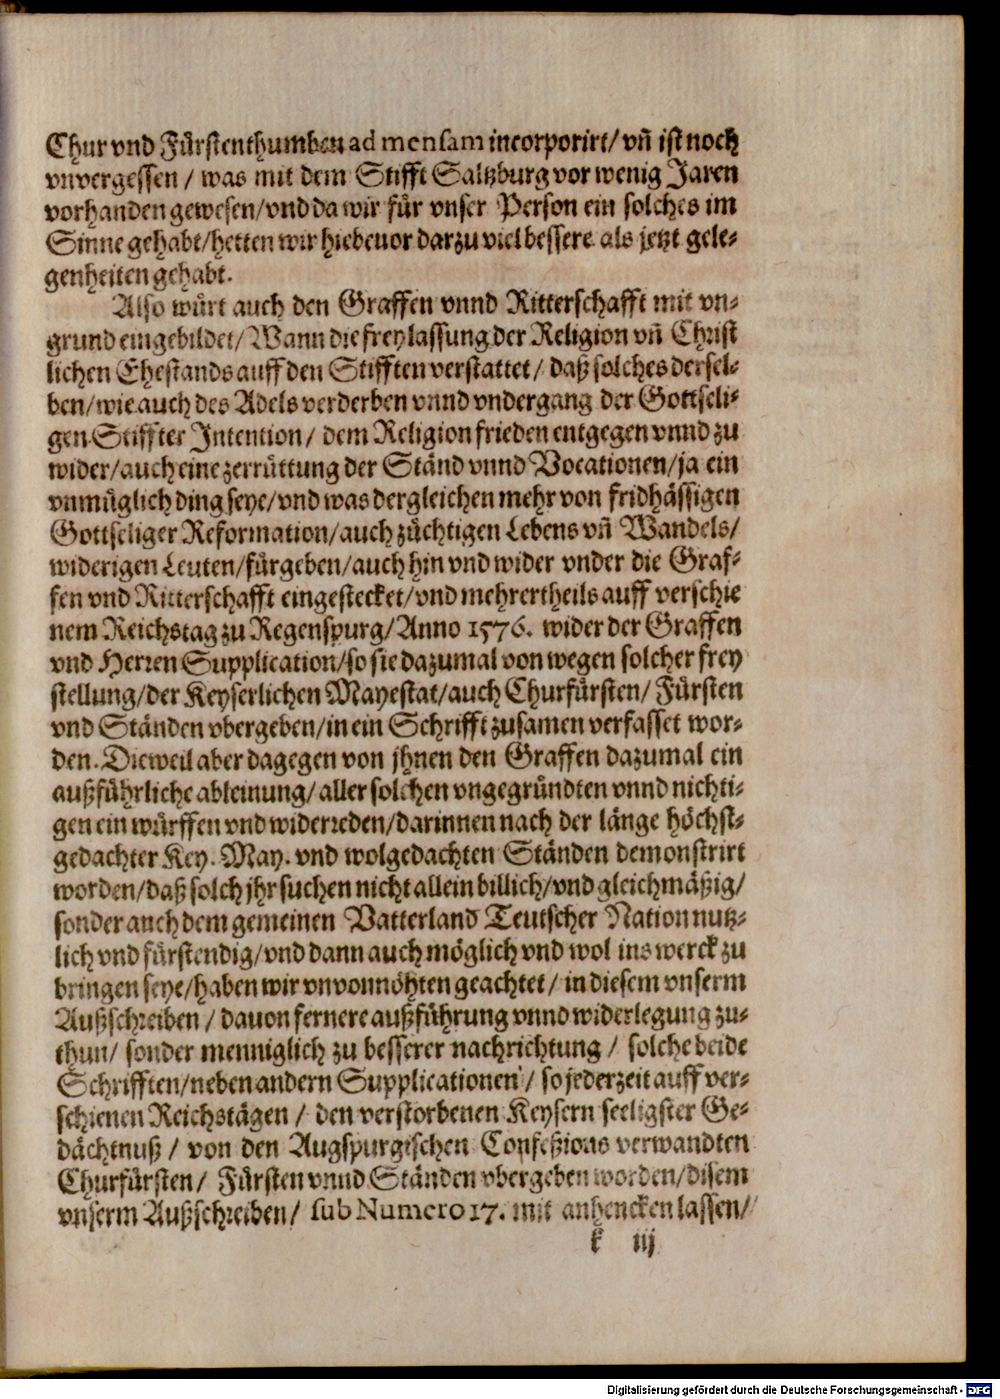 Chur vnd Fürstenthumben ad mensam incorporirt/ vñ ist noch
vnvergessen / was mit dem Stifft Saltzburg vor wenig Jaren
vorhanden gewesen/vnd da wir für vnser Person ein solches im
Sinne gehabt/hetten wir hiebeuor darzu viel bessere als jetzt gele-
genheiten gehabt.
Also würt auch den Graffen vnnd Ritterschafft mit vn-
grund eingebildet/ Wann die freylassung der Religion vñ Christ
lichen Ehestands auff den Stifften verstattet/ daß solches dersel-
ben/wie auch des Adels verderben vnnd vndergang der Gottseli-
gen Stiffter Intention/ dem Religion frieden entgegen vnnd zu
wider/auch eine zerrüttung der Ständ vnnd Vocationen/ja ein
vnmüglich ding seye/vnd was dergleichen mehr von fridhässigen
Gottseliger Reformation/auch züchtigen Lebens vñ Wandels/
widerigen Leuten/fürgeben/auch hin vnd wider vnder die Graf-
fen vnd Ritterschafft eingestecket/vnd mehrertheils auff verschie
nem Reichstag zu Regenspurg/Anno 1576. wider der Graffen
vnd Herren Supplication/so sie dazumal von wegen solcher frey
stellung/der Keyserlichen Mayestat/auch Churfürsten/ Fürsten
vnd Ständen vbergeben/in ein Schrifft zusamen verfasset wor-
den. Dieweil aber dagegen von jhnen den Graffen dazumal ein
außführliche ableinung/ aller solchen vngegründten vnnd nichti-
gen ein würffen vnd widerreden/darinnen nach der länge höchst-
gedachter Key. May. vnd wolgedachten Ständen demonstrirt
worden/daß solch jhr suchen nicht allein billich/vnd gleichmäßig/
sonder auch dem gemeinen Vatterland Teutscher Nation nutz-
lich vnd fürstendig/vnd dann auch möglich vnd wol ins werck zu
bringen seye/haben wir vnvonnöhten geachtet/ in diesem vnserm
Außschreiben / davon fernere außführung vnnd widerlegung zu-
thun/ sonder menniglich zu besserer nachrichtung / solche beide
Schrifften/neben andern Supplicationen / so jederzeit auff ver-
schienen Reichstägen / den verstorbenen Keysern seeligster Ge-
dächtnuß / von den Augspurgischen Confeßions verwandten
Churfürsten/ Fürsten vnnd Ständen vbergeben worden/disem
vnserm Außschreiben/ sub Numero 17. mit anhencken lassen/
k iij
Digitalisierung gefördert durch die Deutsche Forschungsgemeinschaft - DFG